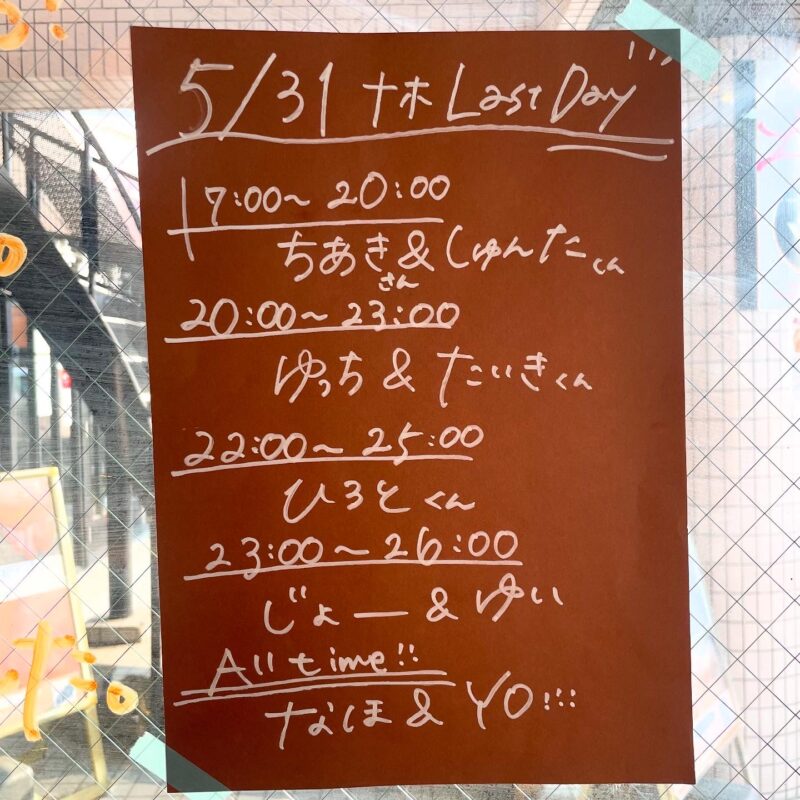 5/31 ナホ Last Day
17:00～20:00
ちあきさん&しゅんたくん
20:00～23:00
ゆっち & たいきくん
22:00～25:00
ひろとくん
23:00～26:00
じょー & ゆい
All time!!
なほ & YO!!!